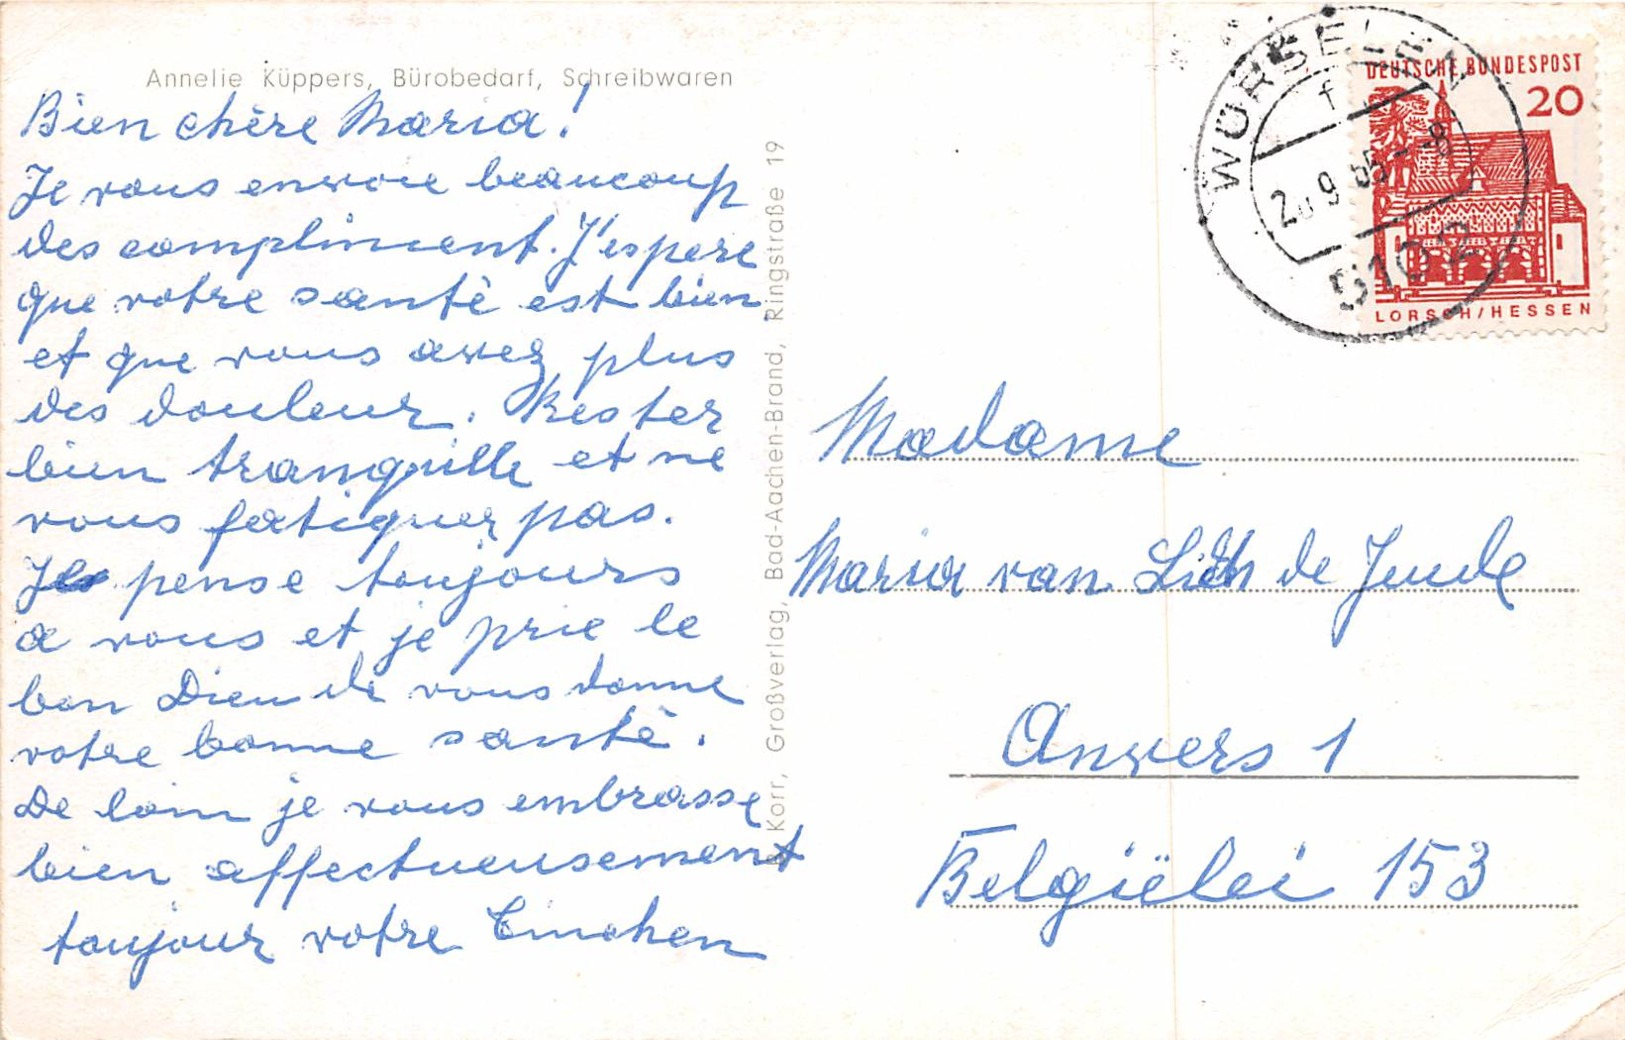 Annelie Küppers, Bürobedarf, Schreibwaren
Bien chère Maria!
Je vous envoie beaucoup
des compliment. J'espere
que votre santè est bien
et que vous avez plus
des douleur. Rester
bien tranquille et ne
vous fatiquer pas.
Je pense toujours
a vous et je prie le
bon Dieu de vous donne
votre bonne santè.
De loin je vous embrasse
bien affectueusement
toujour votre
Korr, Großverlag, Bad-Aachen-Brand, Ringstraße 19
WÜRSELEN
f
9 65-8
5102
DEUTSCHE BUNDESPOST
20
LORSCH/HESSEN
Madame
Maria van de Jeude
Anvers 1
Belgiëlei 153